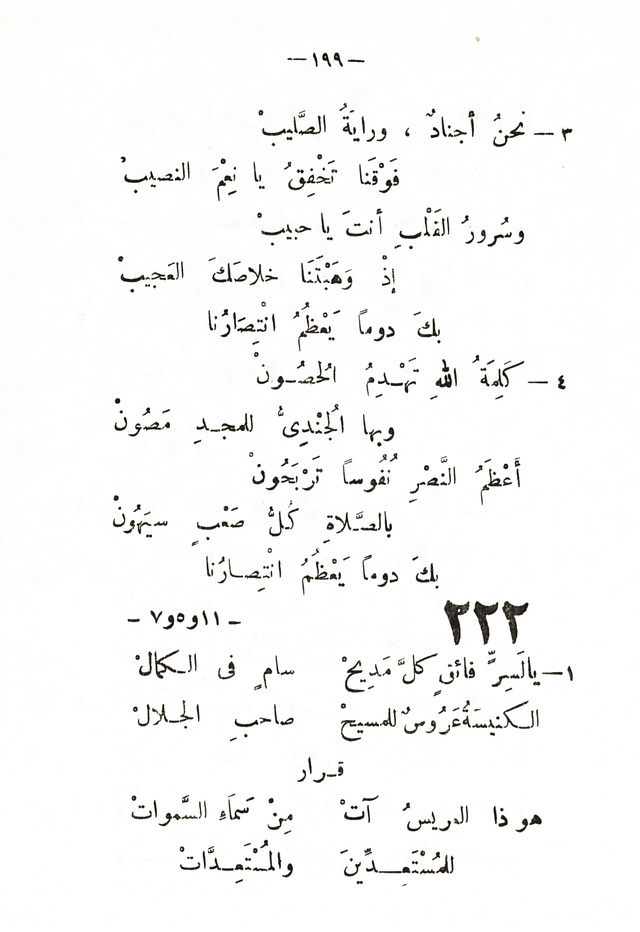 — ١٩٩ —
٣ — نحنُ أجنادٌ ، ورايَةُ الصَّليبْ
فَوْقَنا تَخْفِقُ يا نِعْمَ النصيبْ
وسُرورُ القَلْبِ أنتَ يا حبيبْ
إذْ وَهَبْتَنَا خلاصَكَ العَجيبْ
بكَ دوماً يَعْظُمُ انْتِصَارُنا
٤ — كَلِمَةُ اللهِ تَهْدِمُ الحُصُونْ
وبها الجُنْدِىُّ للمجدِ مَصُونْ
أَعْظَمُ النَّصْرِ نُفُوساً تَرْبَحُونْ
بالصَّلاةِ كُلُّ صَعْبٍ سيَهُونْ
بكَ دوماً يَعْظُمُ انْتِصارُنا
٢٢٢ - ١١و٥و٧ -
١ — يالَسِرٍّ فائقٍ كلَّ مَديحْ سامٍ فى الكمالْ
الكنيسَةُ عَرُوسٌ للمسيحْ صاحبِ الجلالْ
قرار
هوذا العريسُ آتْ مِنْ سَمَاءِ السَّمواتْ
للمُسْتَعِدِّينَ والمُسْتَعِدَّاتْ